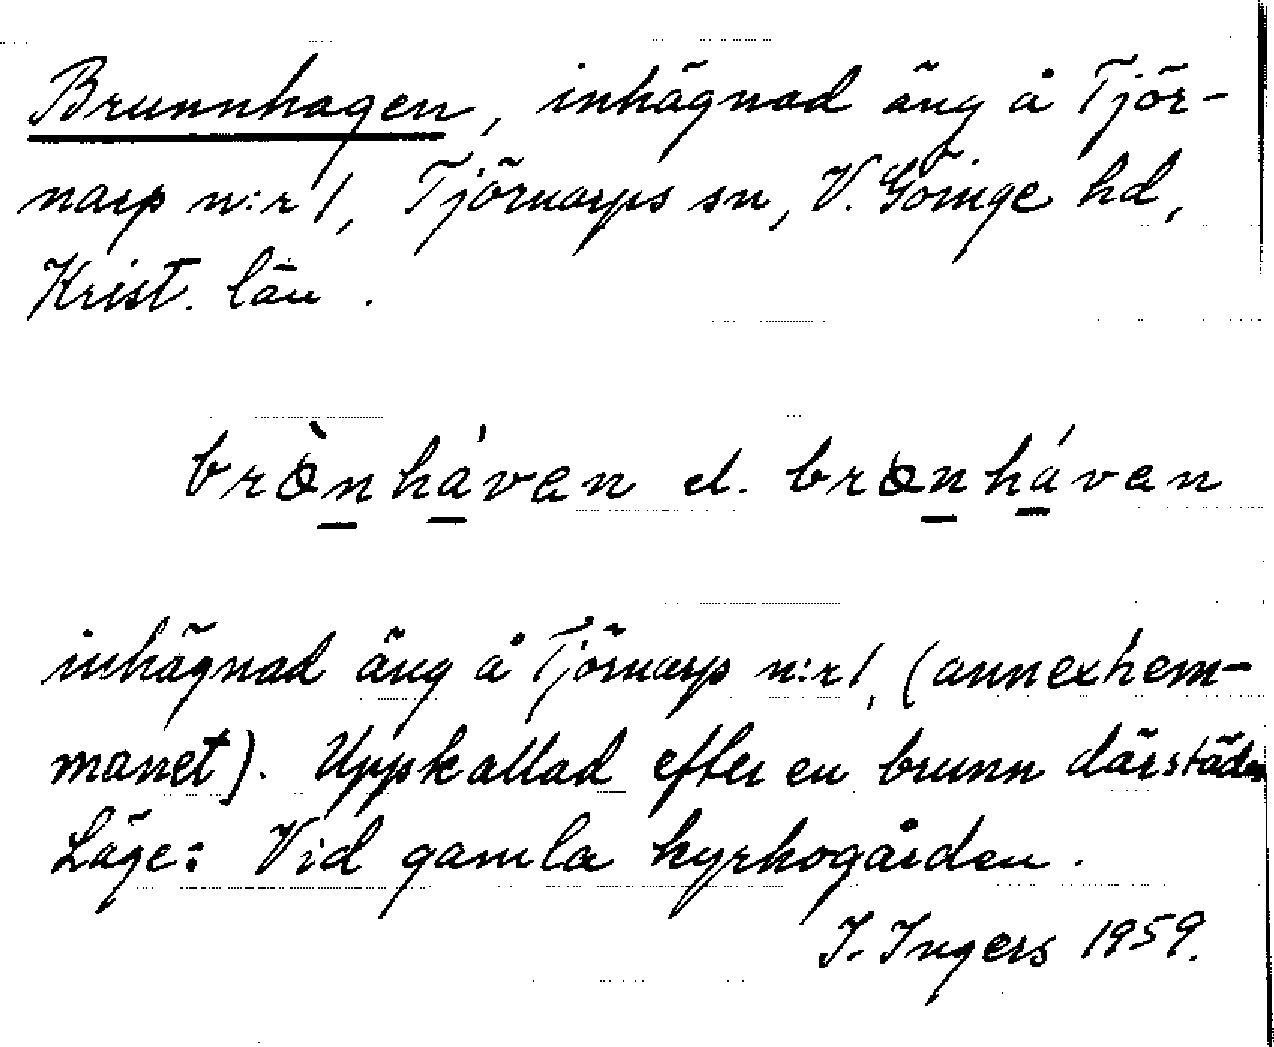 Brunnhagen, inhägnad äng å Tjör-
narp n:r 1, Tjörnarps sn, V. Göinge hd,
Krist. län.
brò̱nhá̱ven el. bro̱nhá̱ven
inhägnad äng å Tjörnarp n:r 1, (annexhem-
manet). Uppkallad efter en brunn därstädes
Läge: Vid gamla kyrkogården.
I. Ingers 1959.